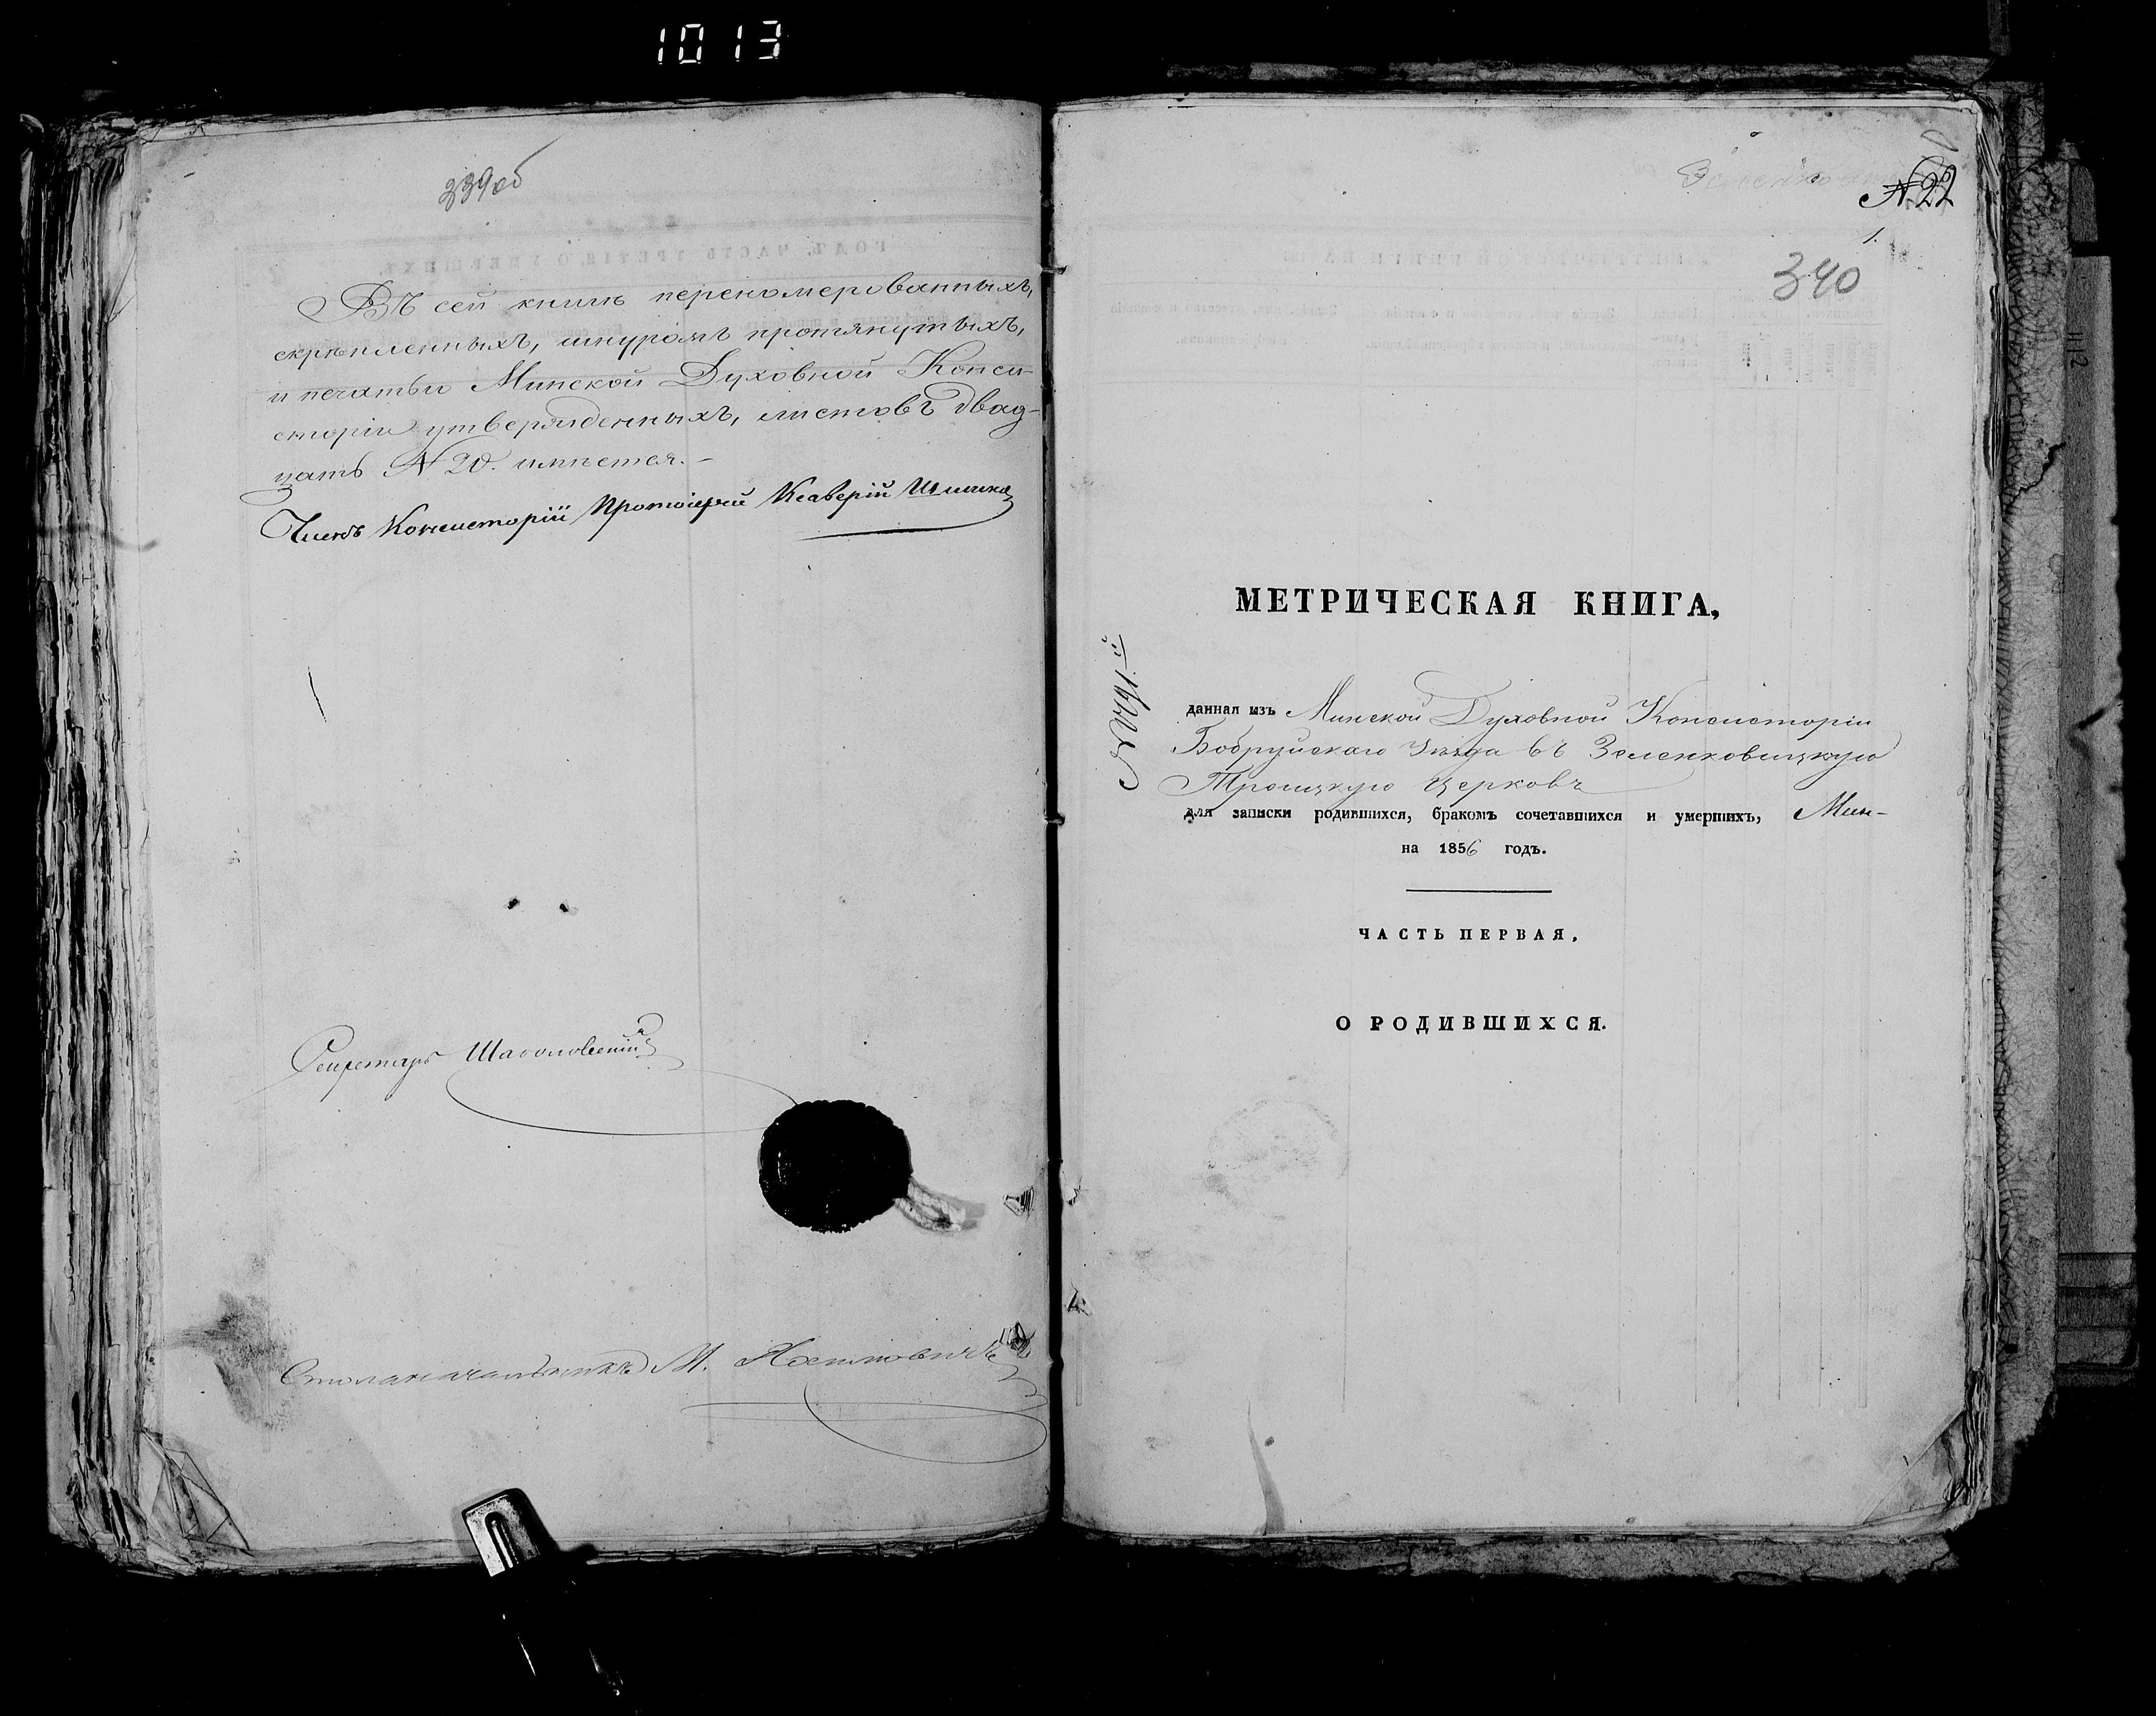 1013
339об
Въ сей книгѣ перекомерованныхъ,
скрѣпленныхъ, шнуромъ протянутыхъ,
и печатью Минской Духовной Конси-
сторіи утвержденныхъ, листовъ двад-
цать № 20. имѣется.-
Членъ Консисторіи Протоіерей Ксаверій
Секретарь
Столоначальникъ М.
№ 22
1.
340
МЕТРИЧЕСКАЯ КНИГА,
данная изъ Минской Духовной Консисторіи
Бобруйскаго Уѣзда въ Зеленковицкую
Троицкую церковь
для записки родившихся, бракомъ сочетавшихся и умершихъ,
на 1856 годъ.
ЧАСТЬ ПЕРВАЯ.
О РОДИВШИХСЯ.